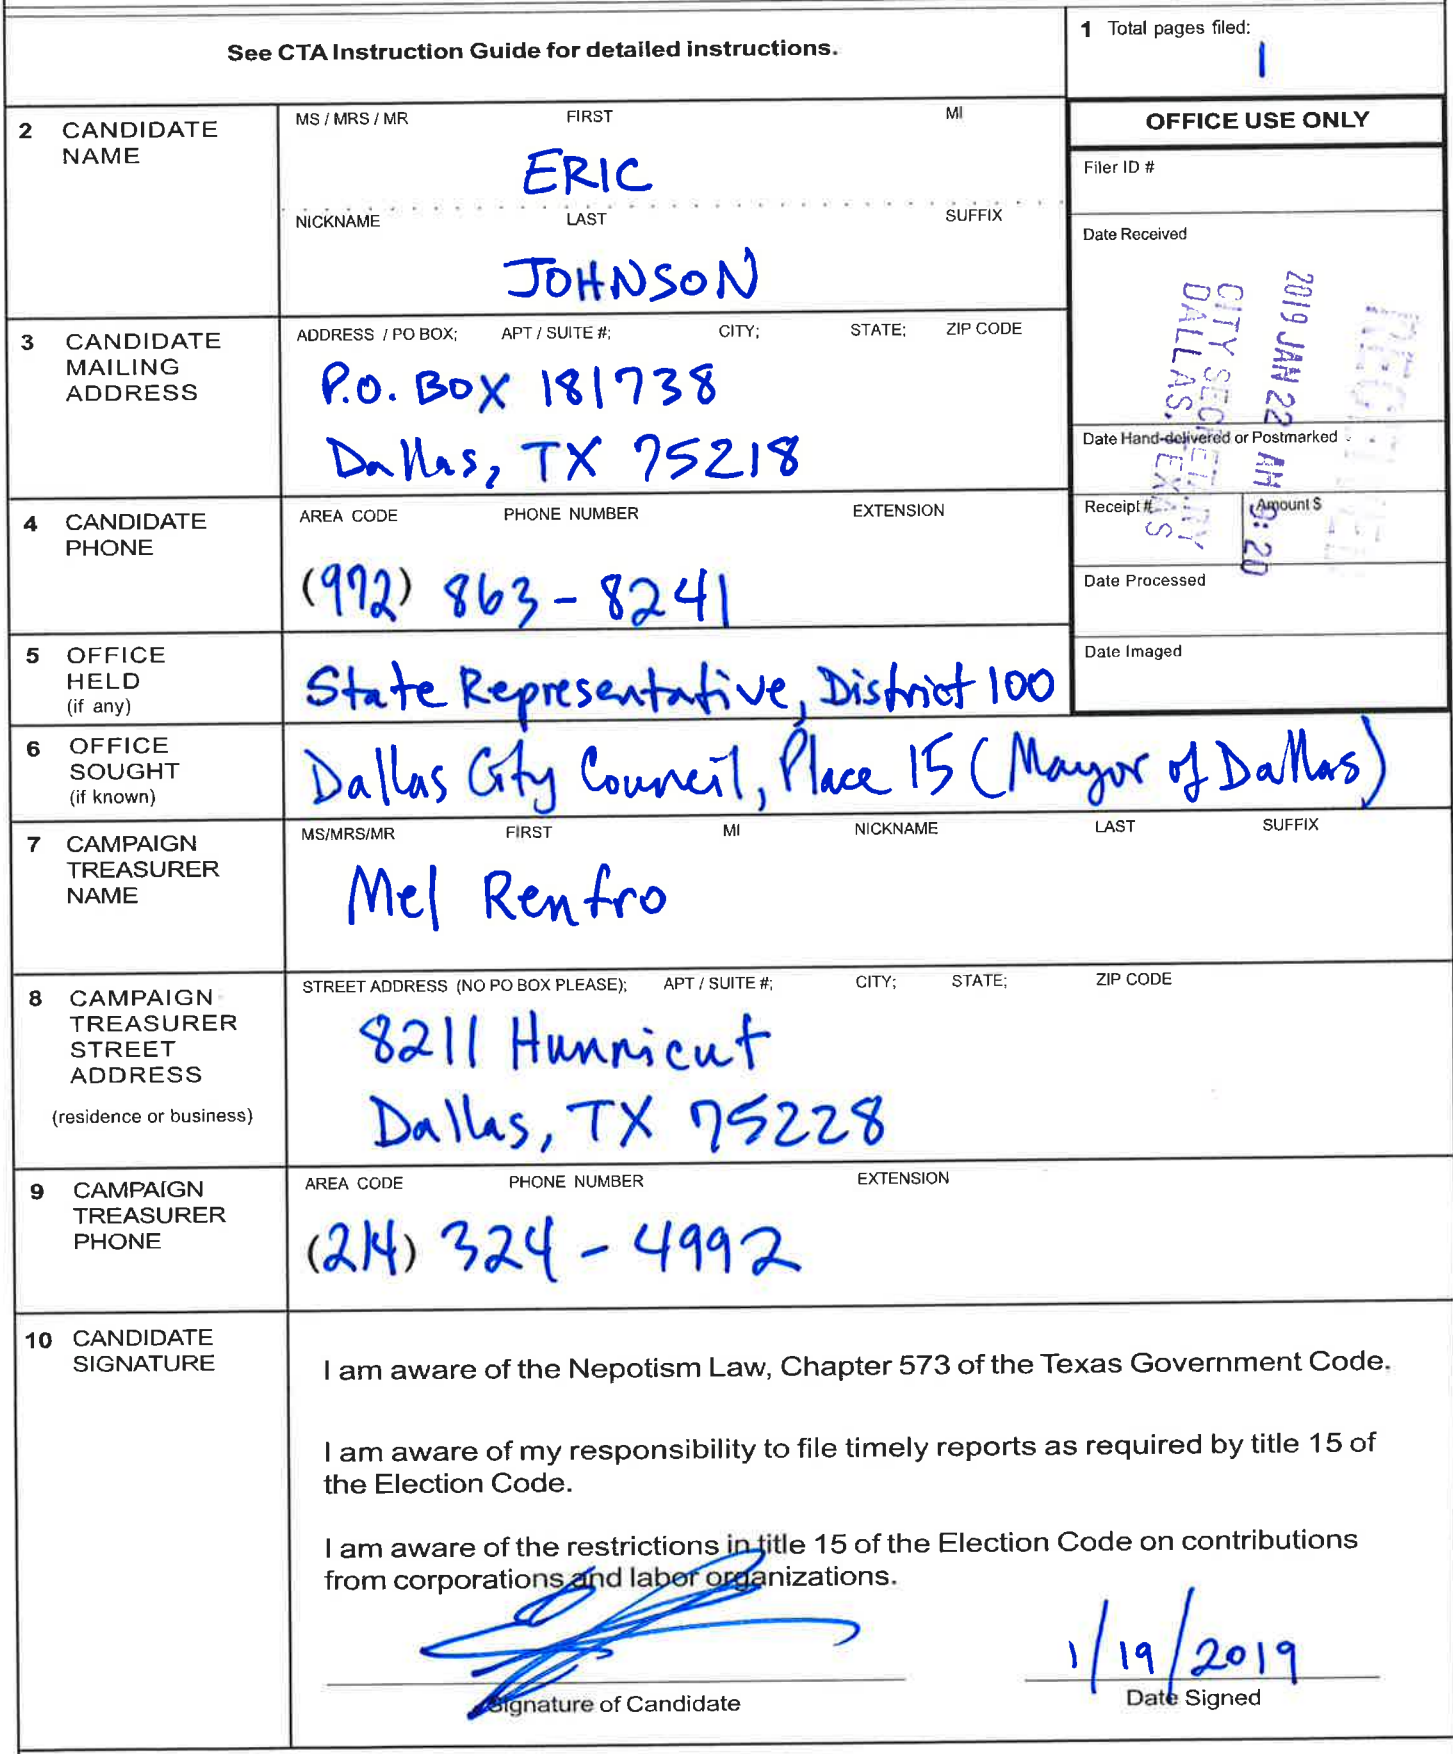 See CTA Instruction Guide for detailed instructions.
1 Total pages filed:
1
2 CANDIDATE NAME
MS / MRS / MR FIRST MI
ERIC
NICKNAME LAST SUFFIX
JOHNSON
OFFICE USE ONLY
Filer ID #
Date Received
RECEIVED
2019 JAN 22 AM 9:20
CITY SECRETARY
DALLAS, TEXAS
Date Hand-delivered or Postmarked
Receipt # Amount $
Date Processed
Date Imaged
3 CANDIDATE MAILING ADDRESS
ADDRESS / PO BOX; APT / SUITE #; CITY; STATE; ZIP CODE
P.O. BOX 181738
Dallas, TX 75218
4 CANDIDATE PHONE
AREA CODE PHONE NUMBER EXTENSION
(972) 863-8241
5 OFFICE HELD (if any)
State Representative, District 100
6 OFFICE SOUGHT (if known)
Dallas City Council, Place 15 (Mayor of Dallas)
7 CAMPAIGN TREASURER NAME
MS/MRS/MR FIRST MI NICKNAME LAST SUFFIX
Mel Renfro
8 CAMPAIGN TREASURER STREET ADDRESS
(residence or business)
STREET ADDRESS (NO PO BOX PLEASE); APT / SUITE #; CITY; STATE; ZIP CODE
8211 Hunnicut
Dallas, TX 75228
9 CAMPAIGN TREASURER PHONE
AREA CODE PHONE NUMBER EXTENSION
(214) 324-4992
10 CANDIDATE SIGNATURE
I am aware of the Nepotism Law, Chapter 573 of the Texas Government Code.
I am aware of my responsibility to file timely reports as required by title 15 of
the Election Code.
I am aware of the restrictions in title 15 of the Election Code on contributions
from corporations and labor organizations.
1/19/2019
Signature of Candidate Date Signed